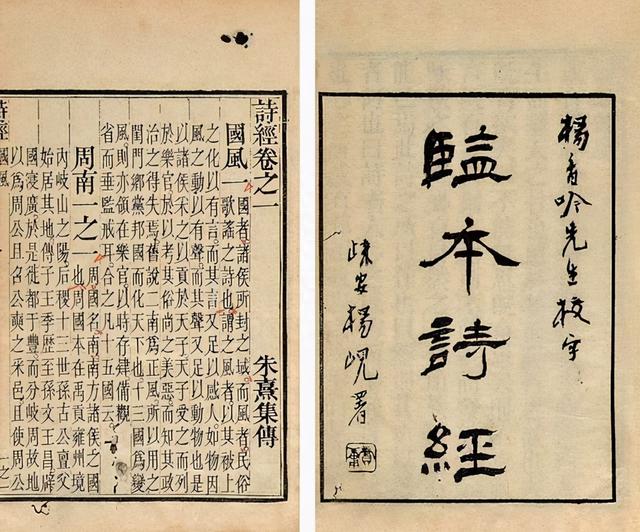 楊香吟先生校字
監本詩經
楊峴署
詩經卷之一
朱熹集傳
國風一
國者諸侯所封之域而風者民俗
歌謠之詩也謂之風者以其被上
之化以有言而其言又足以感人如物因
風之動以有聲而其聲又足以動物也是
以諸侯采之以貢於天子天子受之而列
於樂官於以考其俗尚之美惡而知其政
治之得失焉舊說二南爲正風所以用之
閨門鄉黨邦國而化天下也十三國爲變
風則亦領在樂官以時存肄備觀
省而垂監戒耳合之凡十五國云
周南一之一
周國名南南方諸侯之國
也周國本在禹貢雍州境
內岐山之陽后稷十三世孫古公亶父
始居其地傳子王季歷至孫文王昌辟
國寖廣於是徙都于豐而分岐周故地
以爲周公旦召公奭之采邑且使周公
詩經
國風